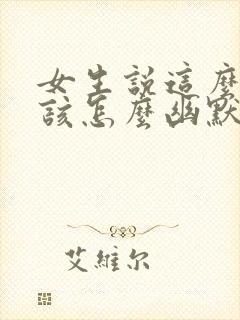 女生說這麼
該怎麼幽默
艾維尔